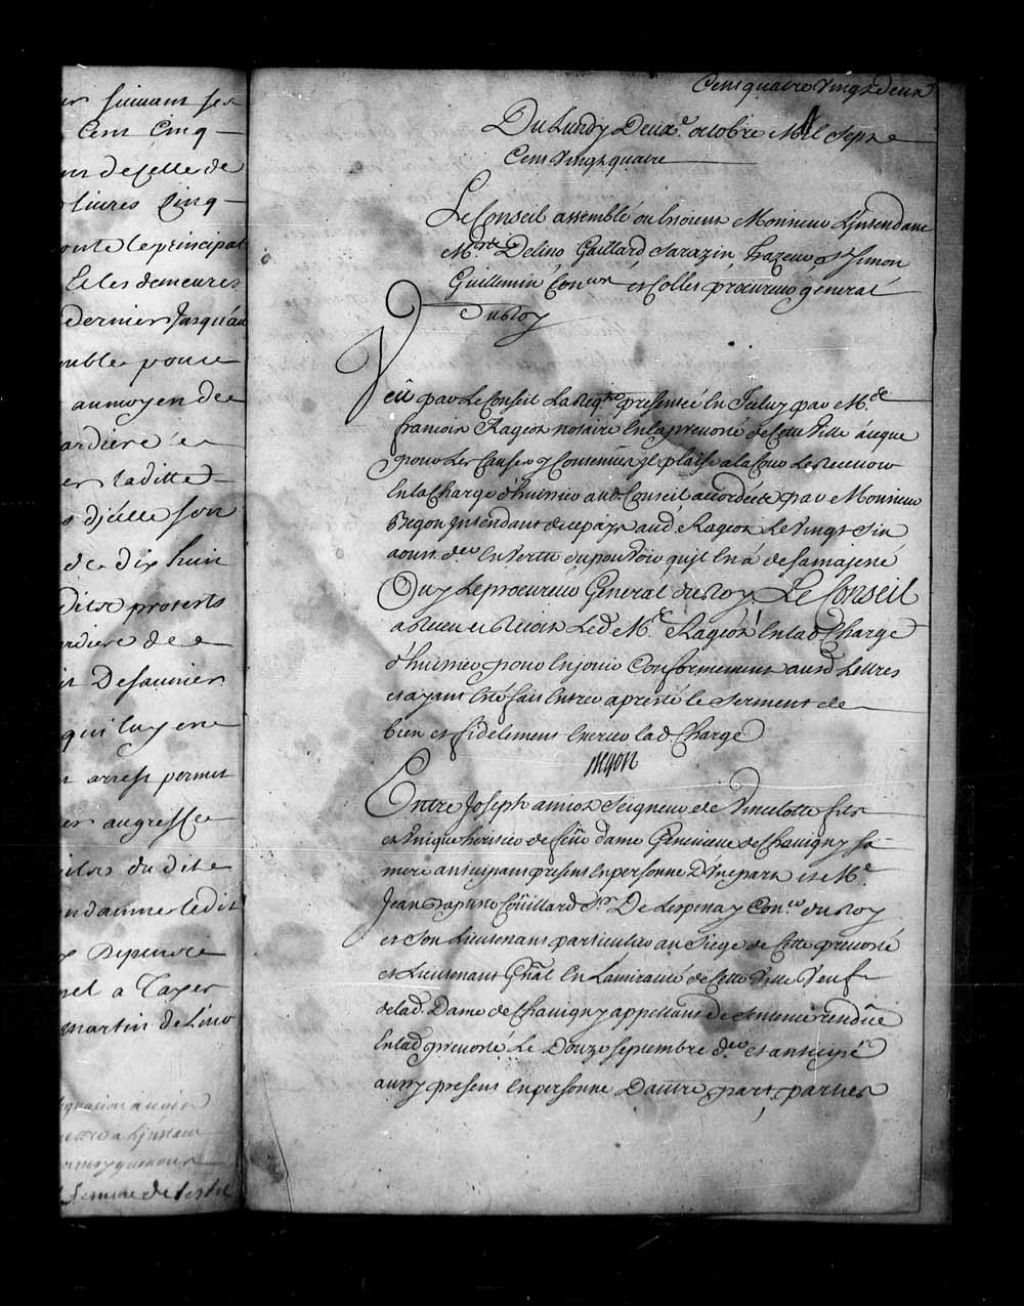 er suivant ses
Cent Cinq
de Celle de
livres Cinq
le principal
Et les demeures
dernier Jusqu'au
pour
au moyen de
ardiere
er laditte
d'jcelle son
de dix huit
protests
ardiere de
Desaunier
qui luy
arrest permis
er au greffe
du dit
ondamne ledit
Depens
el a Taxer
martin de Lino
femme de
Cent quatre Vingt deux
Du Lundy Deuxe. octobre Mil Sept
Cent Vingt quatre
Le Conseil assemblé ou Estoient Monsieur L'jntendant
Mrs. Delino Gaillard Sarazin, hazeur, St Simon
Guillemin Coners et Collet procureur general
du Roy
Veü par Le Conseil La Reqte presentée En Jceluy par Me.
francois Rageot notaire En la prevosté de Cette Ville a ce que
pour Les Causes y Contenües Jl plaise a la Cour Le Recevoir
En la Charge d'huissier aud. Conseil accordée par Monsieur
Begon Jntendant de ce païs aud. Rageot Le Vingt Six
aoust der En Vertu du pouvoir qu'jl En a de sa majesté
Ouy Le procureur General du Roy, Le Conseil
a Receu et Recoit Led. Me. Rageot En lad Charge
d'huissier pour En joüir Conformement ausd Lettres
et ayant Eté fait Entrer a presté le Serment de
bien et fidelement Exercer lad Charge
Begon
Entre Joseph amiot Seigneur de Vincelotte fils
et Unique heritier de feüe dame Genevieve de Chavigny sa
mere anticipant present En personne D'Une part et Me.
Jean Baptiste Coüillard Sr. De Lespinay Coner du Roy
et Son Lieutenant particulier au Siege de Cette prevosté
et Lieutenant Gñal En Lamirauté de Cette Ville Veuf
de lad. Dame de Chavigny appellant de Sentence rendüe
En lad prevosté Le Douze septembre der. et anticipé
aussy present En personne D'autre part, parties